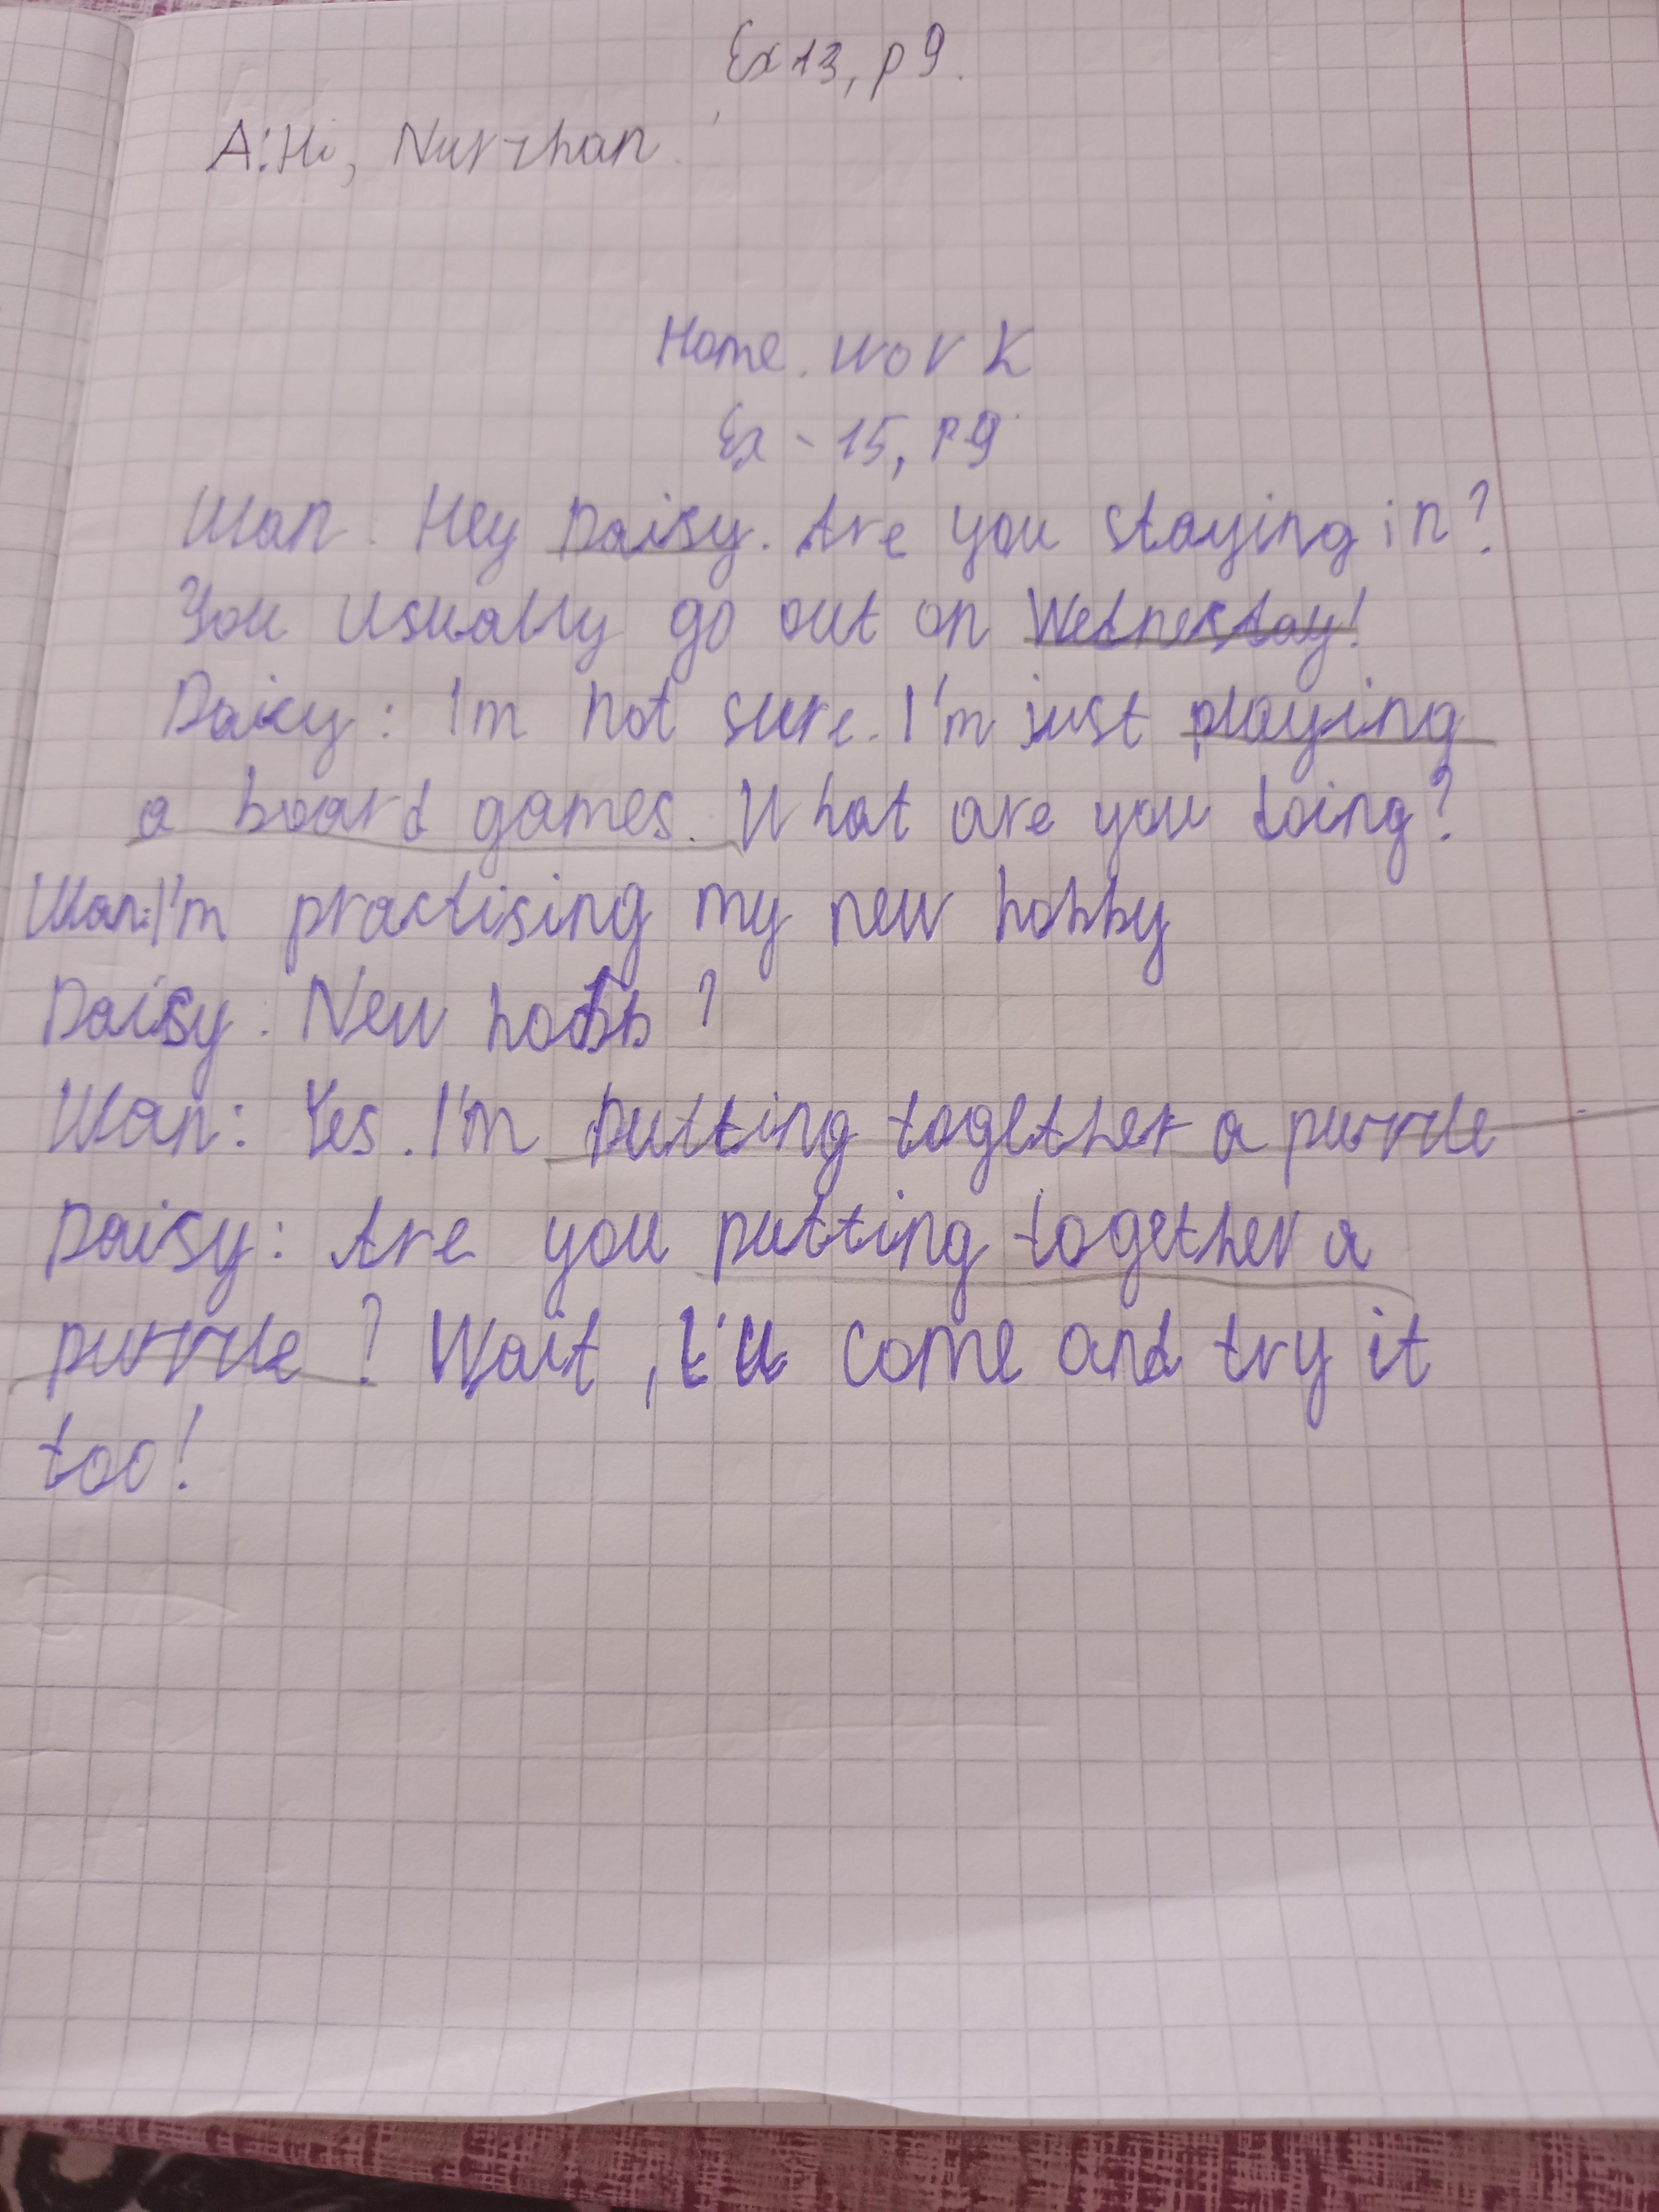 Ex 13, p 9.
A: Hi, Nurzhan.
Home. work
Ex - 15, p 9
Ulan. Hey Daisy. Are you staying in?
You usually go out on Wednesday!
Daisy: I'm not sure. I'm just playing
a board games. What are you doing?
Ulan: I'm practising my new hobby
Daisy. New hobb ?
Ulan: Yes. I'm putting together a puzzle
Daisy: Are you putting together a
puzzle ? Wait, I'll come and try it
too!